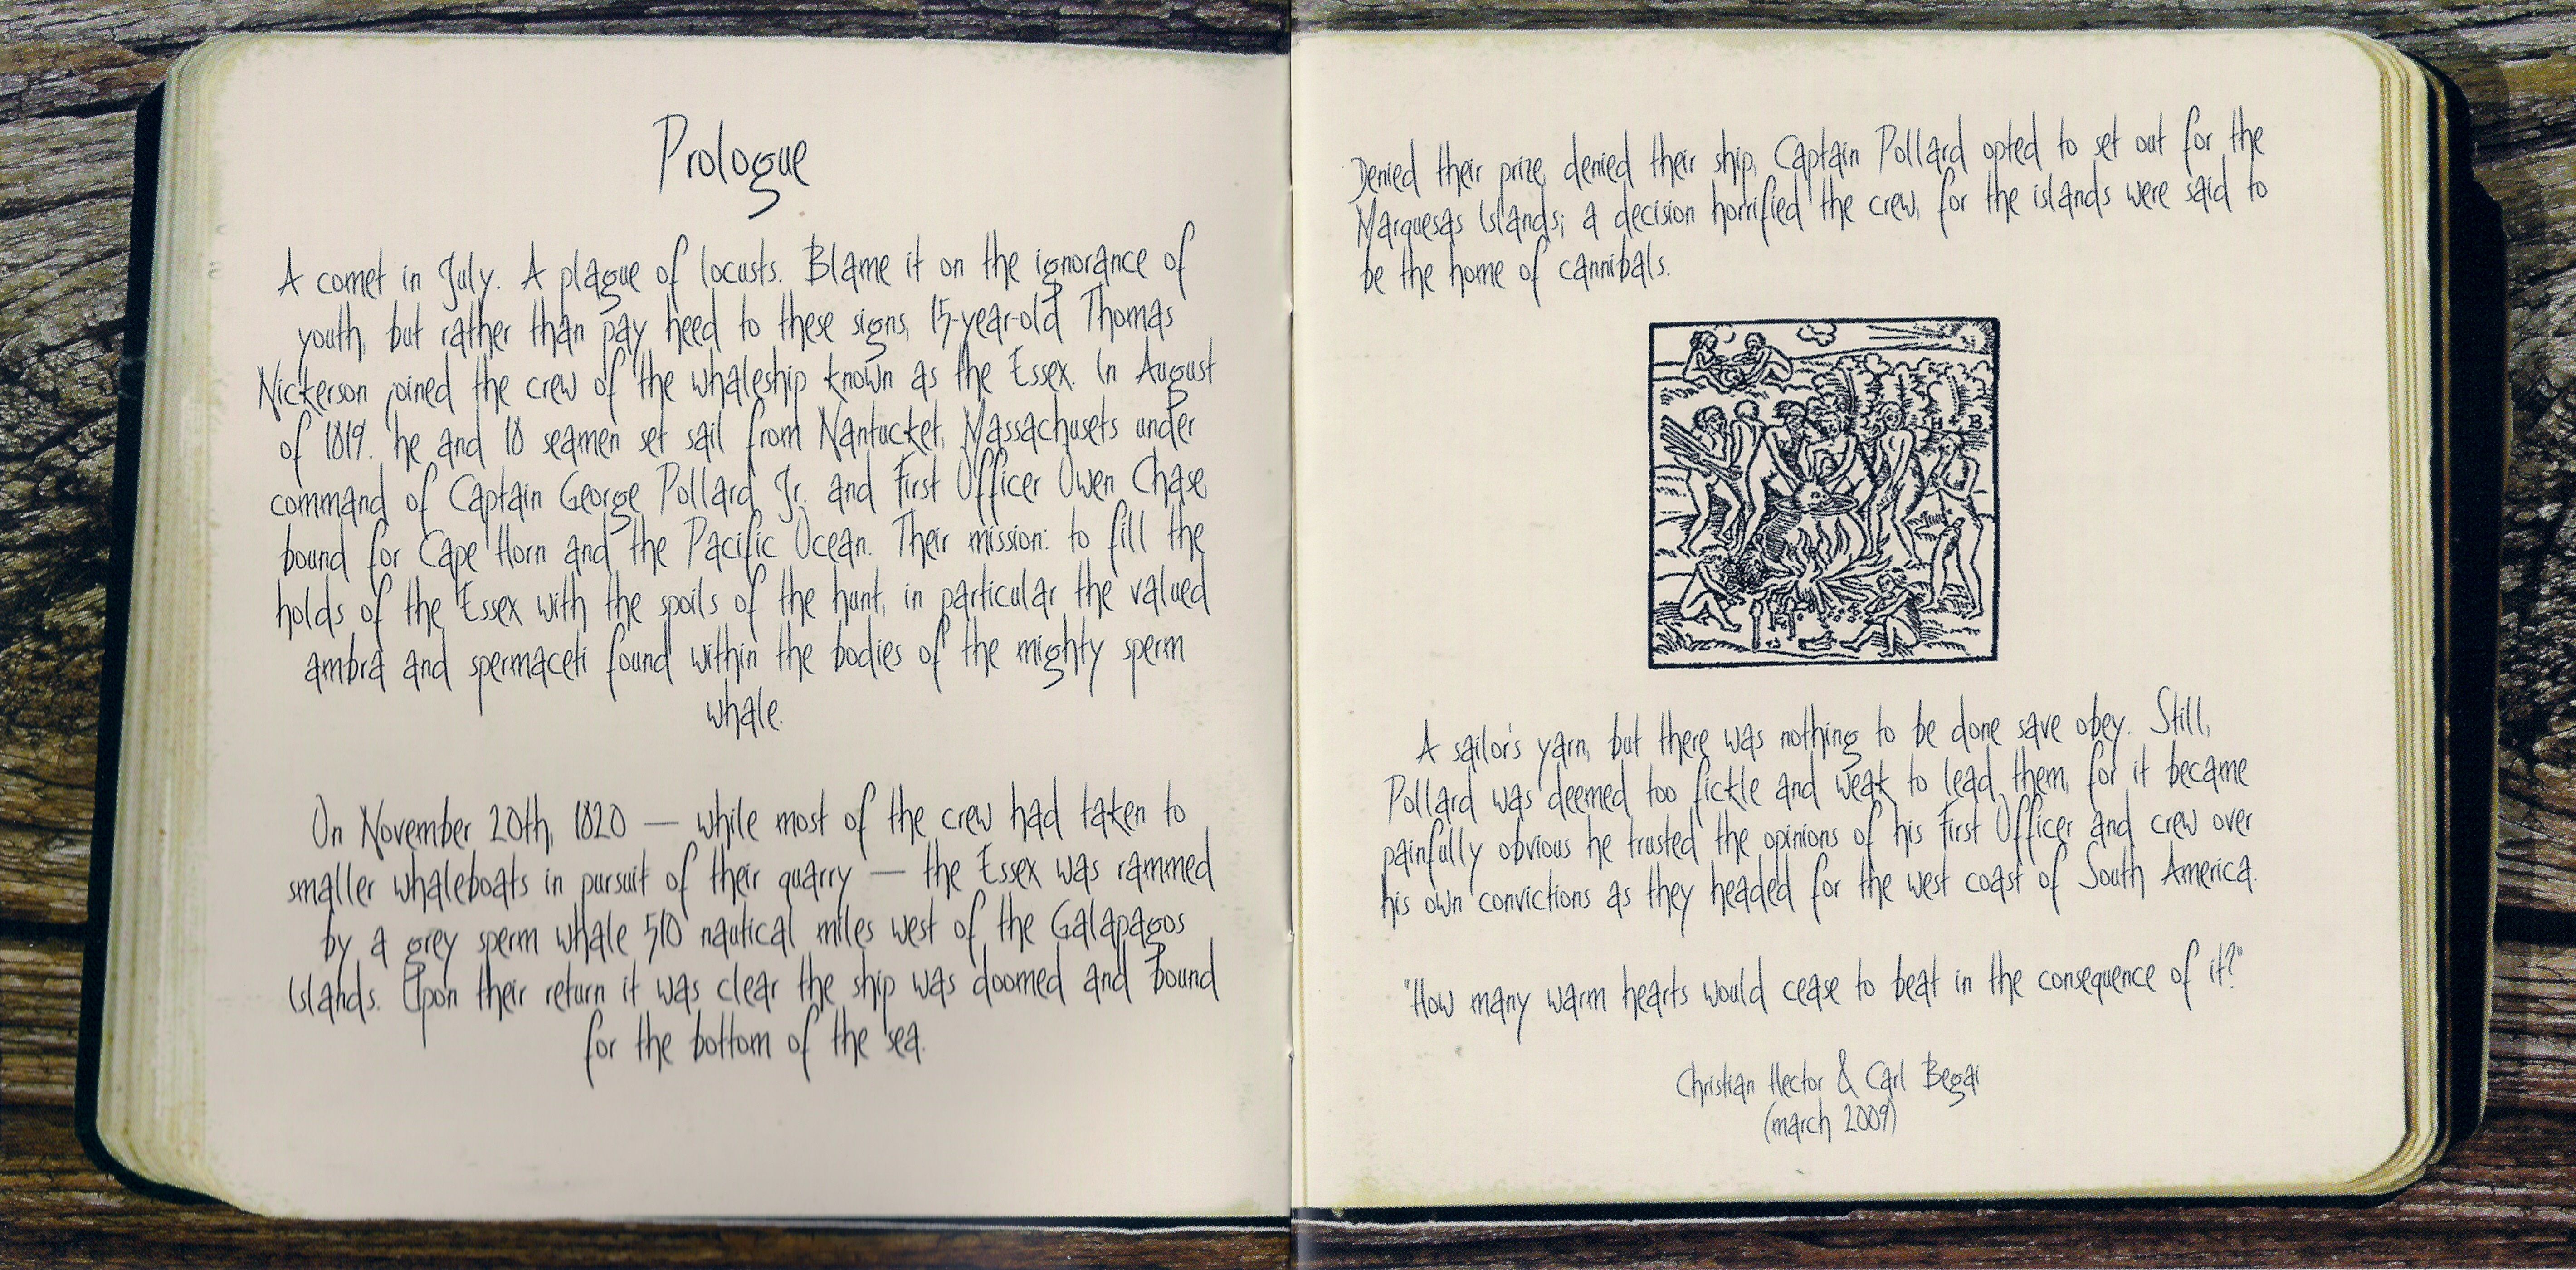 Prologue
A comet in July. A plague of locusts. Blame it on the ignorance of
youth, but rather than pay heed to these signs, 15-year-old Thomas
Nickerson joined the crew of the whaleship known as the Essex. In August
of 1819. he and 18 seamen set sail from Nantucket, Massachusets under
command of Captain George Pollard Jr. and First Officer Owen Chase,
bound for Cape Horn and the Pacific Ocean. Their mission: to fill the
holds of the Essex with the spoils of the hunt, in particular the valued
ambra and spermaceti found within the bodies of the mighty sperm
whale.
On November 20th, 1820 — while most of the crew had taken to
smaller whaleboats in pursuit of their quarry — the Essex was rammed
by a grey sperm whale 510 nautical miles west of the Galapagos
Islands. Upon their return it was clear the ship was doomed and bound
for the bottom of the sea.
Denied their prize, denied their ship, Captain Pollard opted to set out for the
Marquesas Islands; a decision horrified the crew, for the islands were said to
be the home of cannibals.
H + B
A sailor's yarn, but there was nothing to be done save obey. Still,
Pollard was deemed too fickle and weak to lead them, for it became
painfully obvious he trusted the opinions of his First Officer and crew over
his own convictions as they headed for the west coast of South America.
"How many warm hearts would cease to beat in the consequence of it?"
Christian Hector & Carl Begai
(march 2009)